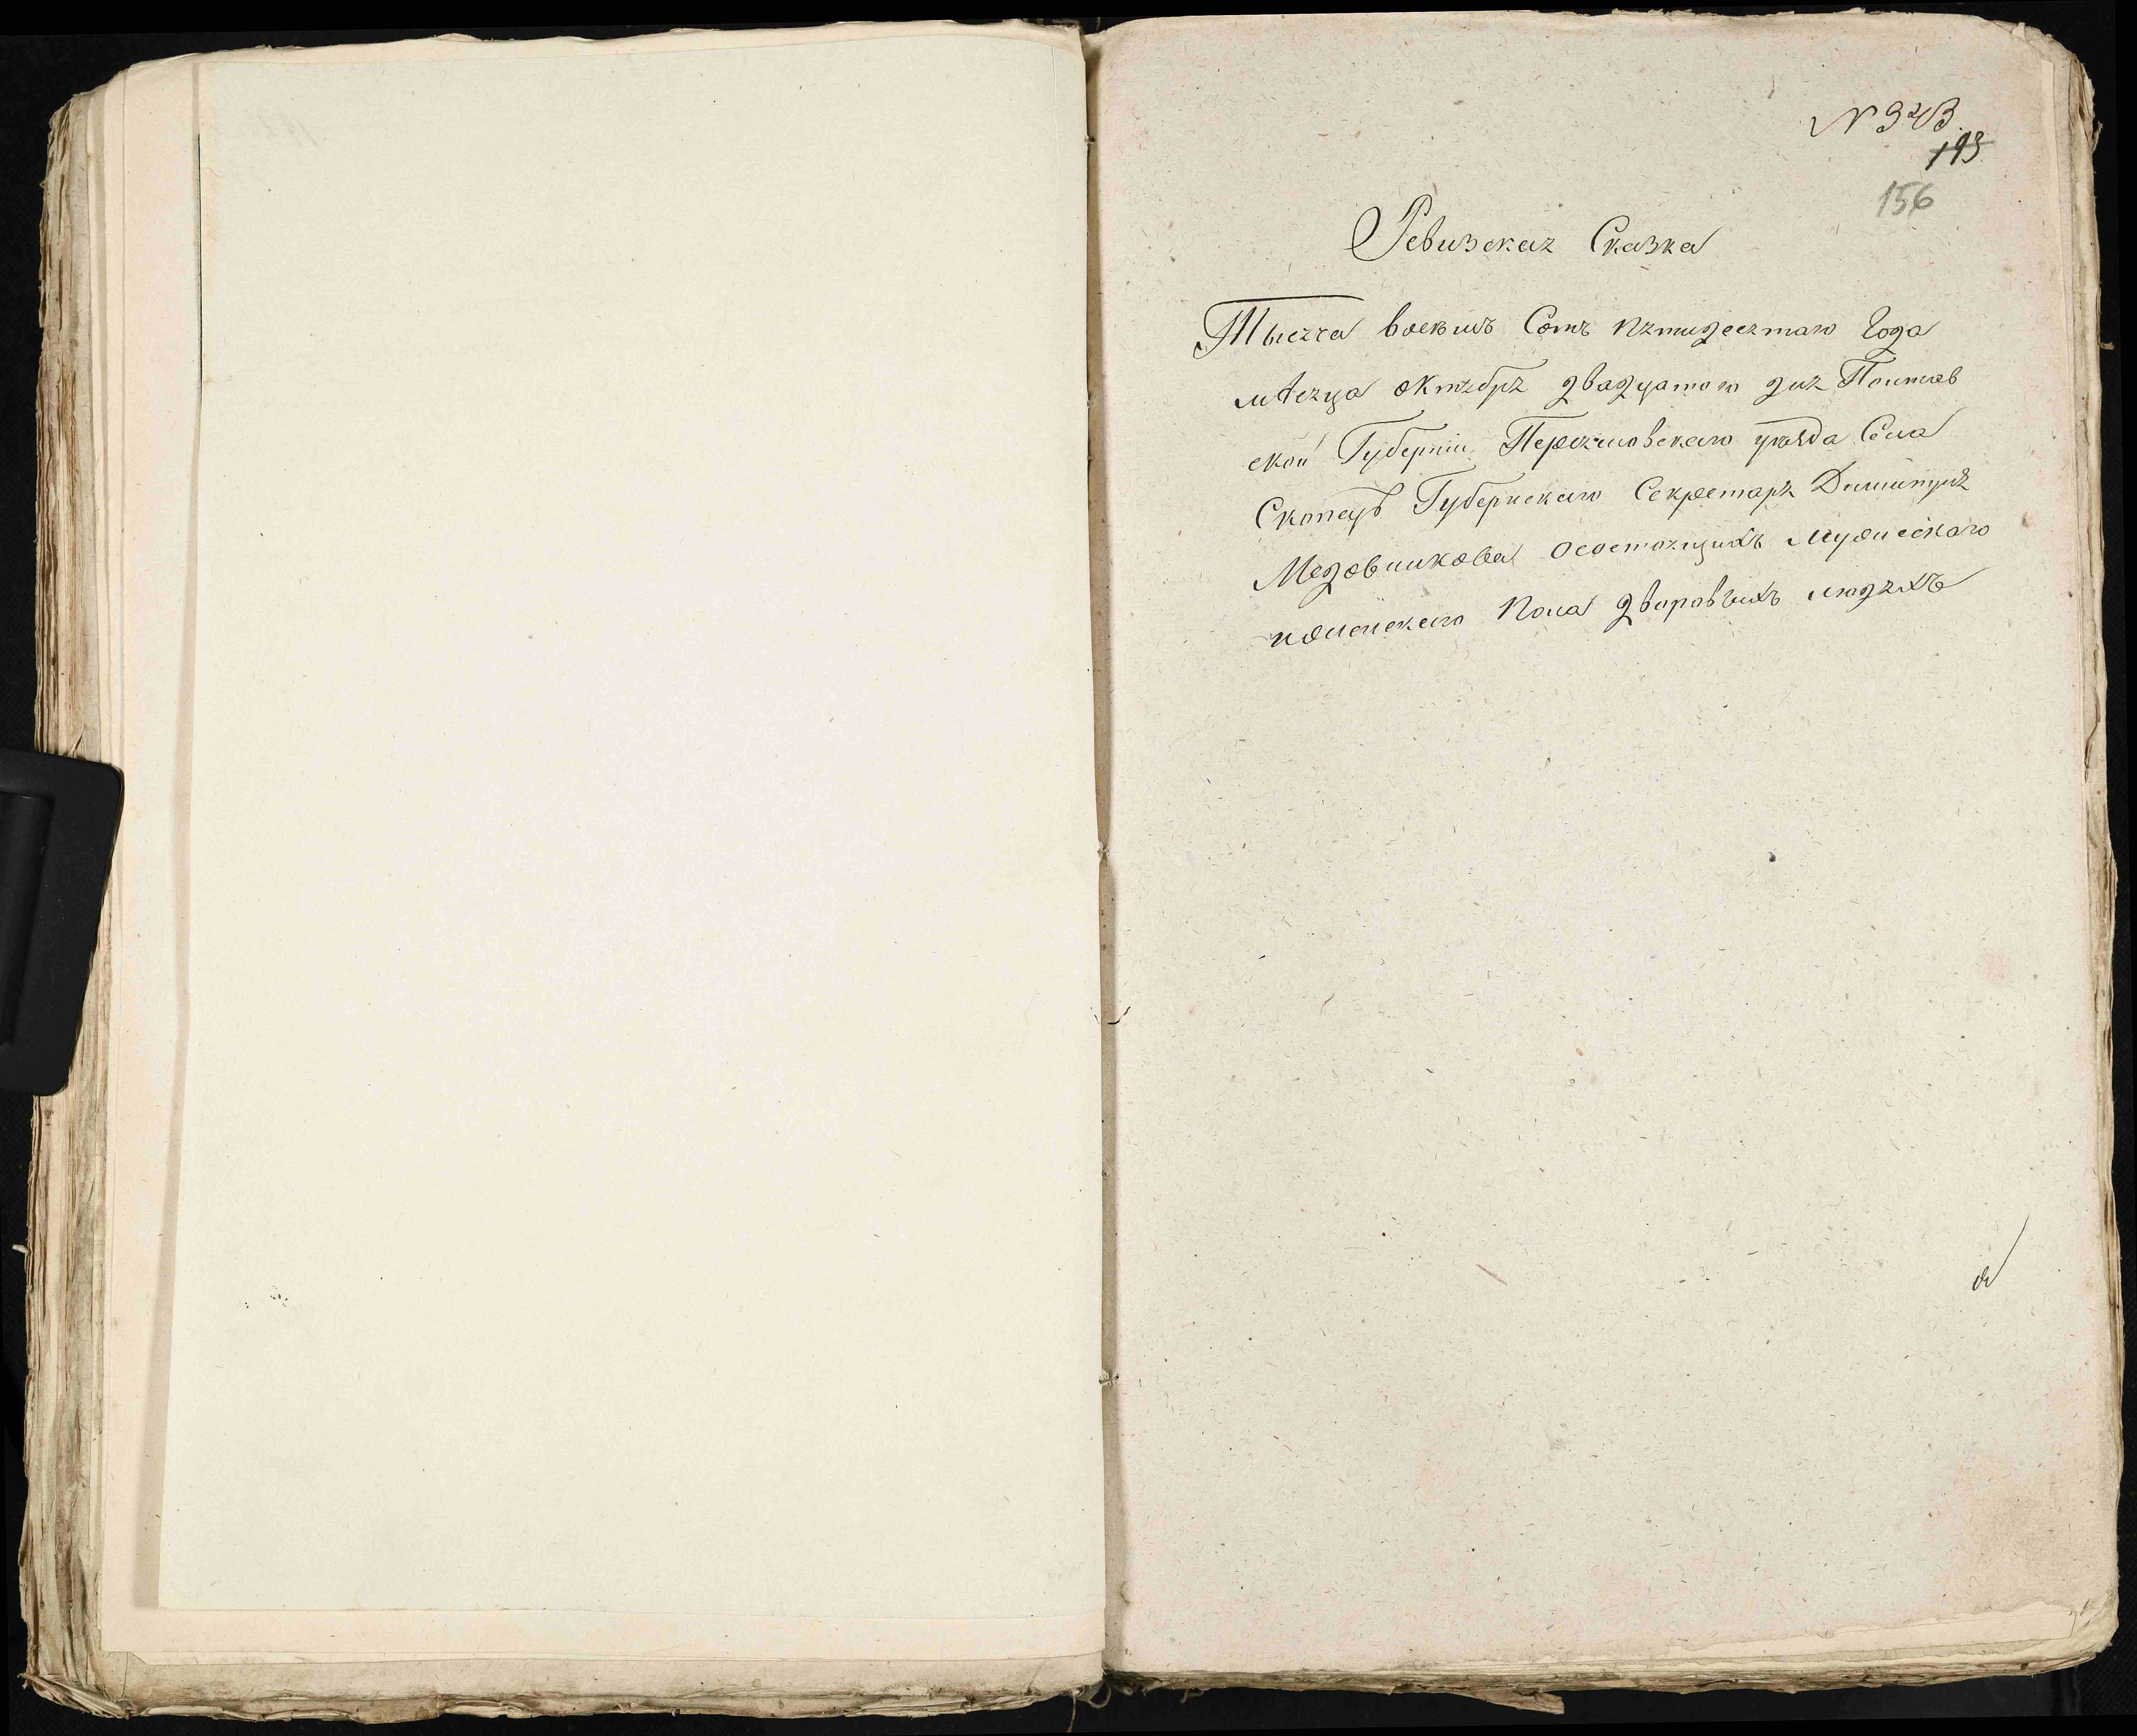 N 343
193
156
Ревизская Сказка
Тысяча восемь Сотъ пятидесятаго Года
мѣсяца октября двадцатого дня Полтав
ской Губерніи Переяславскаго уѣзда Села
Скопцовъ Губернскаго Секретаря Димитрія
Медовникова осостоящихъ мужескаго
иженскаго пола дворовыхъ людяхъ